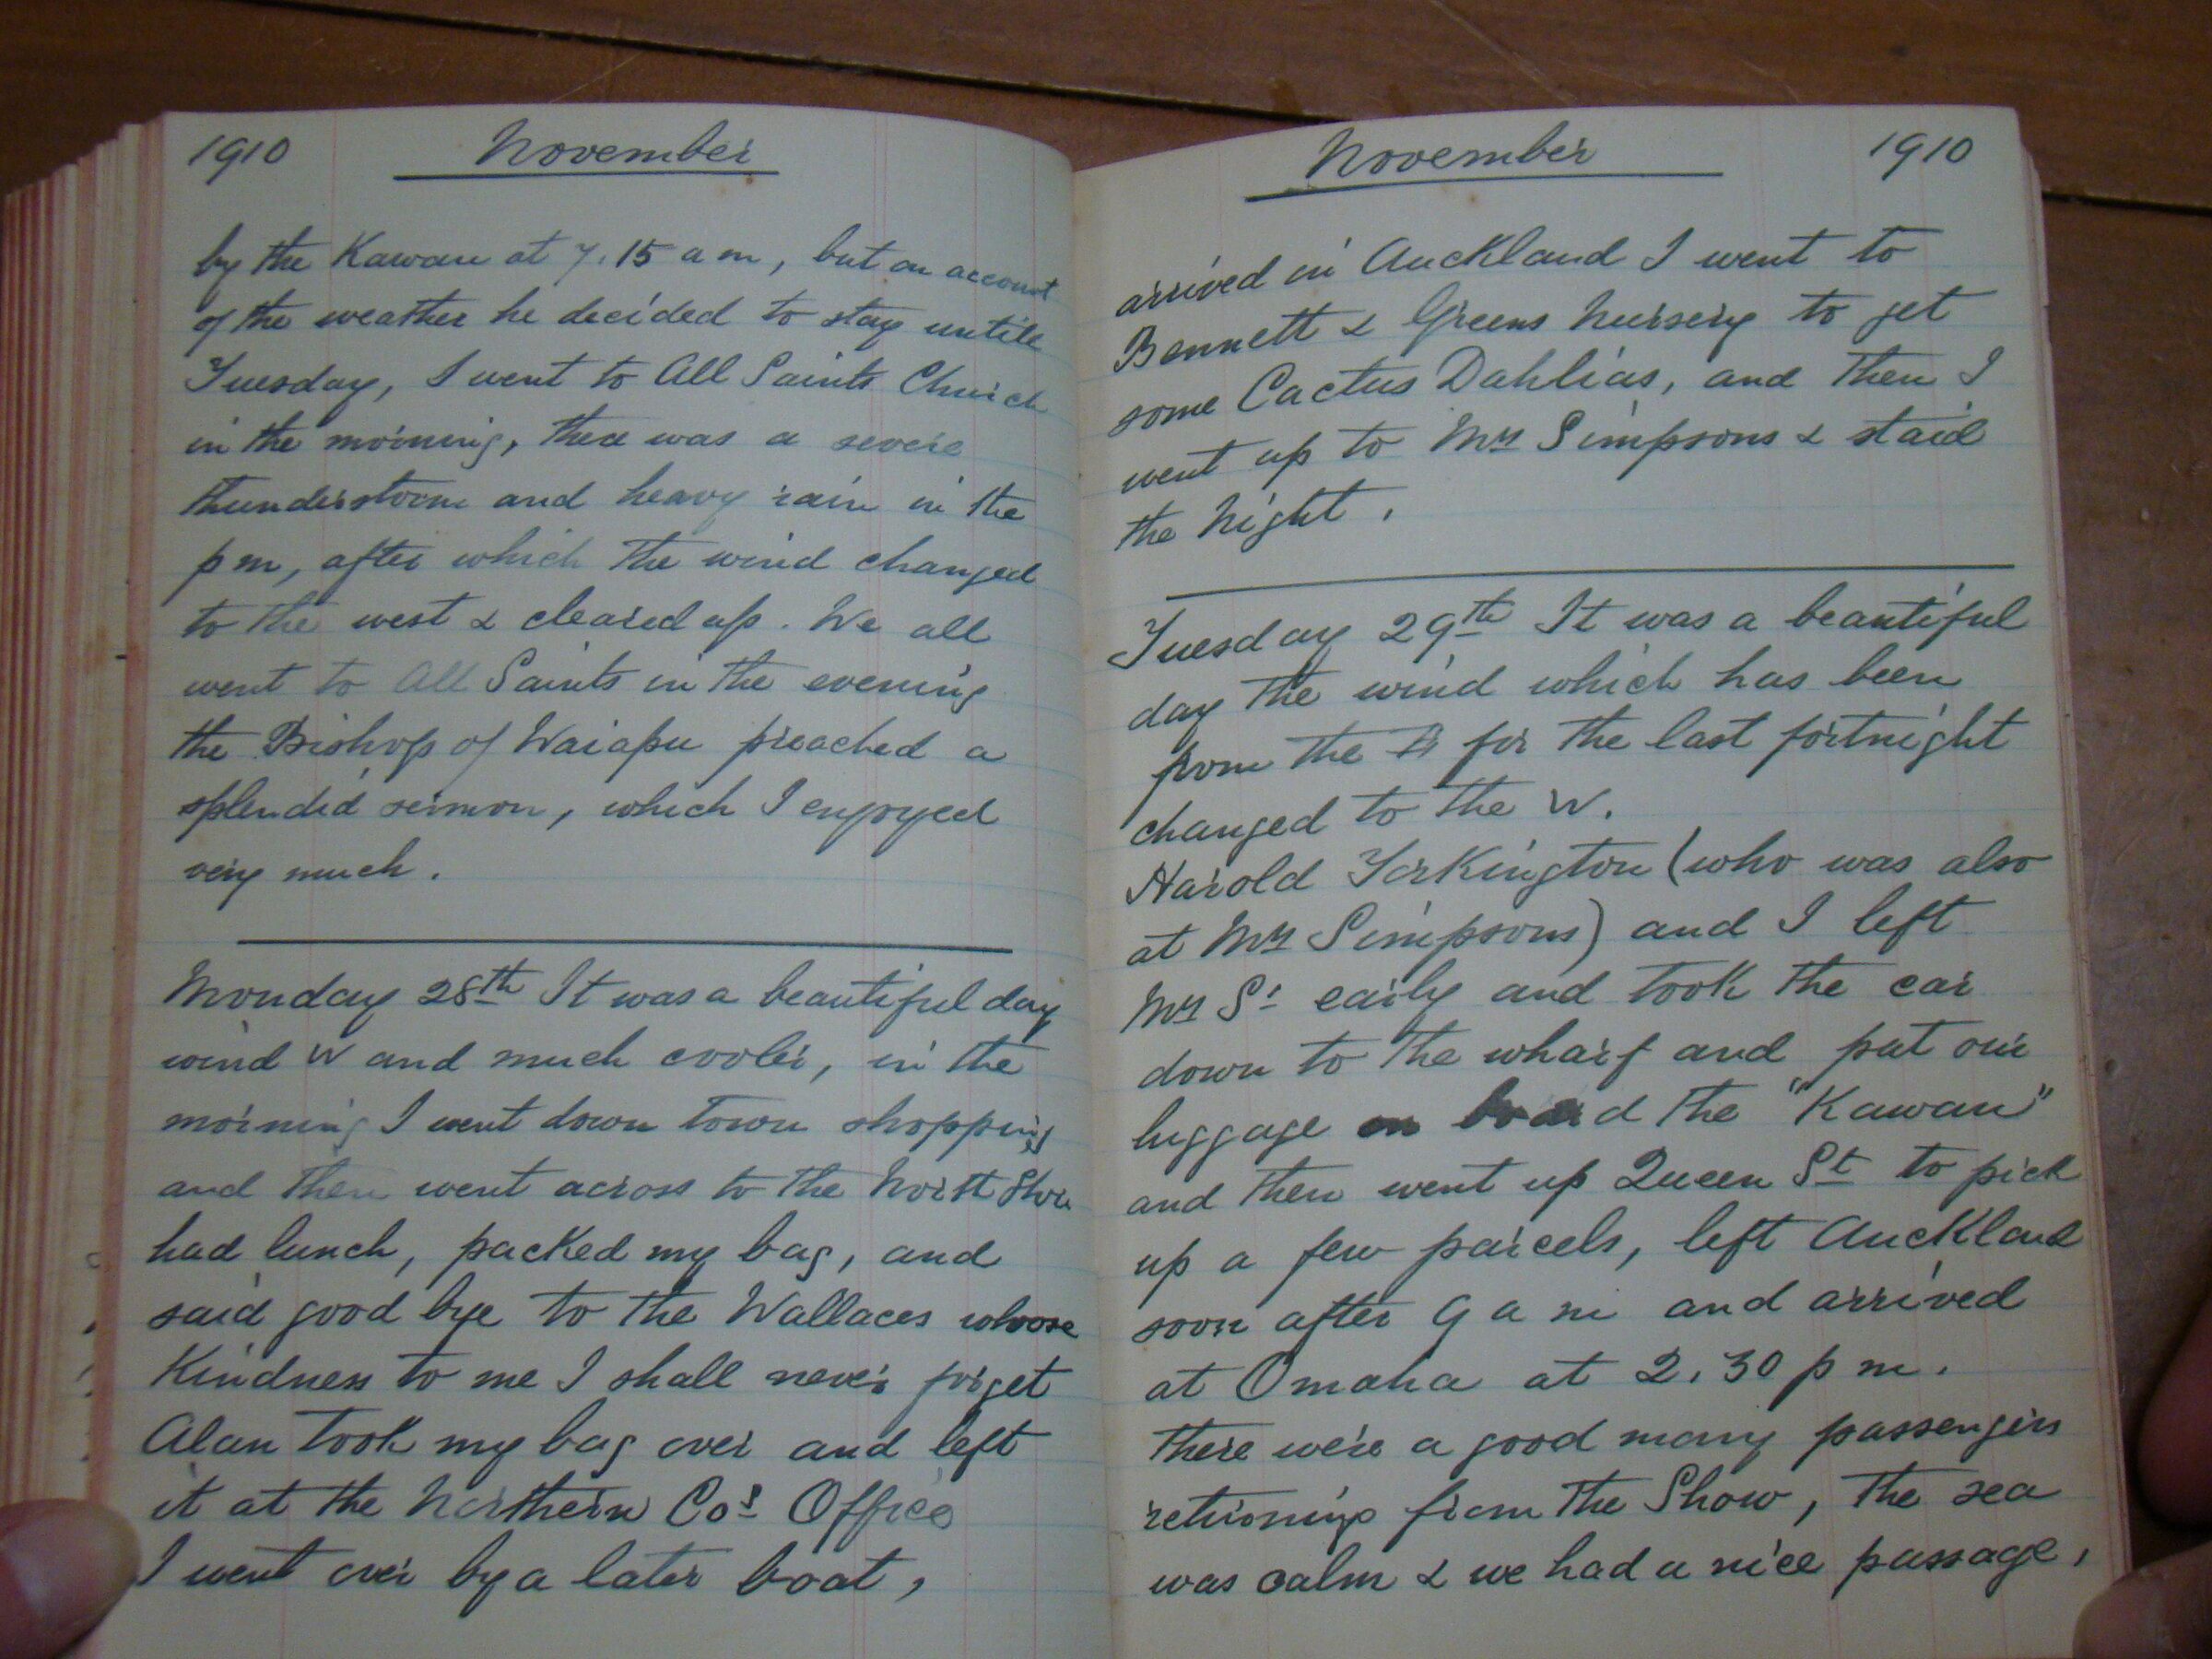 1910 November
by the Kawau at 7.15 a m, but on account
of the weather he decided to stay untill
Tuesday, I went to All Saints Church
in the morning, there was a severe
thunderstorm and heavy rain in the
p m, after which the wind changed
to the west & cleared up. We all
went to All Saints in the evening
the Bishop of Waiapu preached a
splendid sermon, which I enjoyed
very much.
Monday 28th It was a beautiful day
wind W and much cooler, in the
morning I went down town shopping
and then went across to the North Shore
had lunch, packed my bag, and
said good bye to the Wallaces whose
Kindness to me I shall never forget
Alan took my bag over and left
it at the Northern Cos Office
I went over by a later boat,
November 1910
arrived in Auckland I went to
Bennett & Greens Nursery to get
some Cactus Dahlias, and then I
went up to Mrs Simpsons & staid
the night.
Tuesday 29th It was a beautiful
day the wind which has been
from the for the last fortnight
changed to the W.
Harold Torkington (who was also
at Mrs Simpsons) and I left
Mrs S's early and took the car
down to the wharf and put our
luggage on board the "Kawau"
and then went up Queen St to pick
up a few parcels, left Auckland
soon after 9 a m and arrived
at Omaha at 2.30 p m.
there were a good many passengers
returning from the Show, the sea
was calm & we had a nice passage,